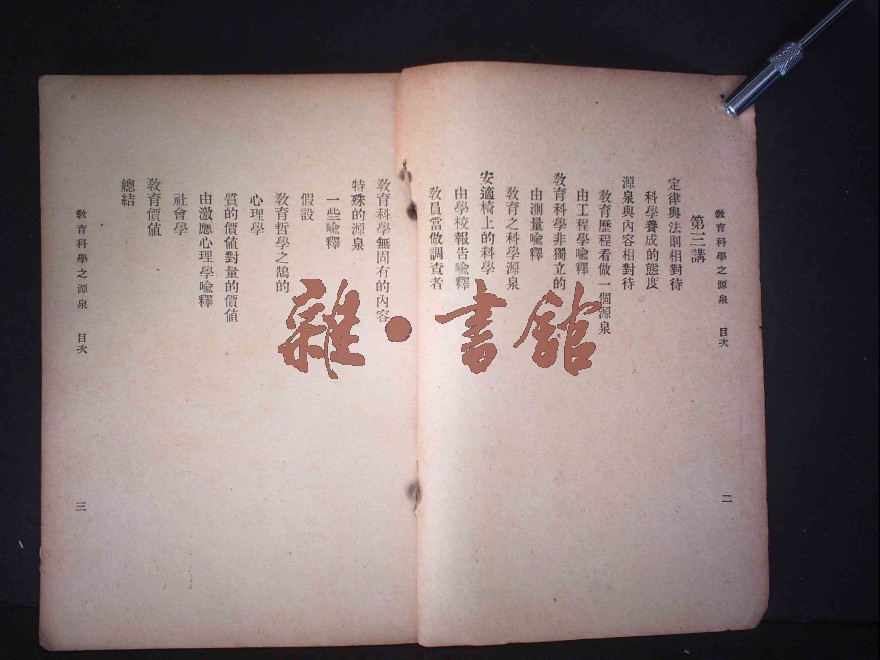 教育科學之源泉 目次
二
第三講
定律與法則相對待
科學養成的態度
源泉與內容相對待
教育歷程看做一個源泉
由工程學喻釋
教育科學非獨立的
由測量喻釋
教育之科學源泉
安適椅上的科學
由學校報告喻釋
教員當做調查者
教育科學無固有的內容
特殊的源泉
一些喻釋
假設
教育哲學之鵠的
心理學
質的價值對量的價值
由激應心理學喻釋
社會學
教育價值
總結
教育科學之源泉 目次
三
雜·書館